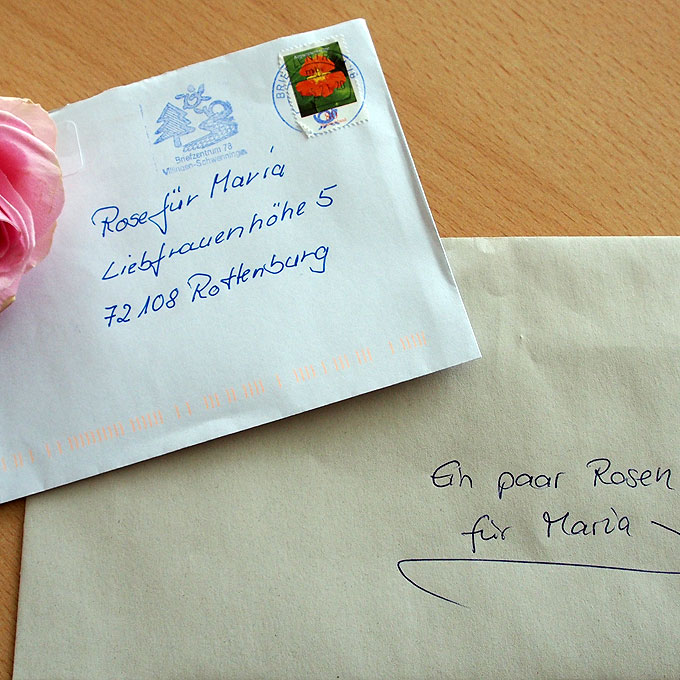 Briefzentrum 78
Villingen-Schwenningen
Rose für Maria
Liebfrauenhöhe 5
72108 Rottenburg
Ein paar Rosen
für Maria